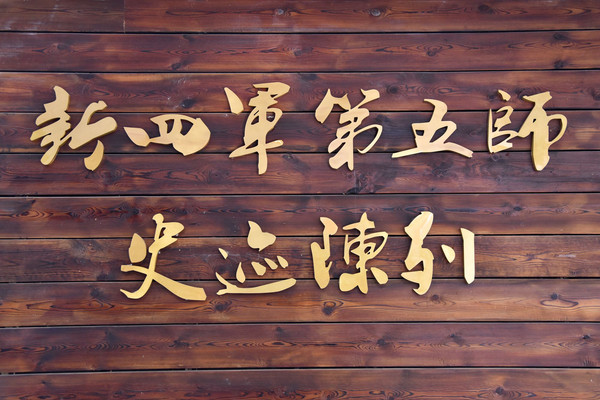 新四軍第五師
史迹陳列